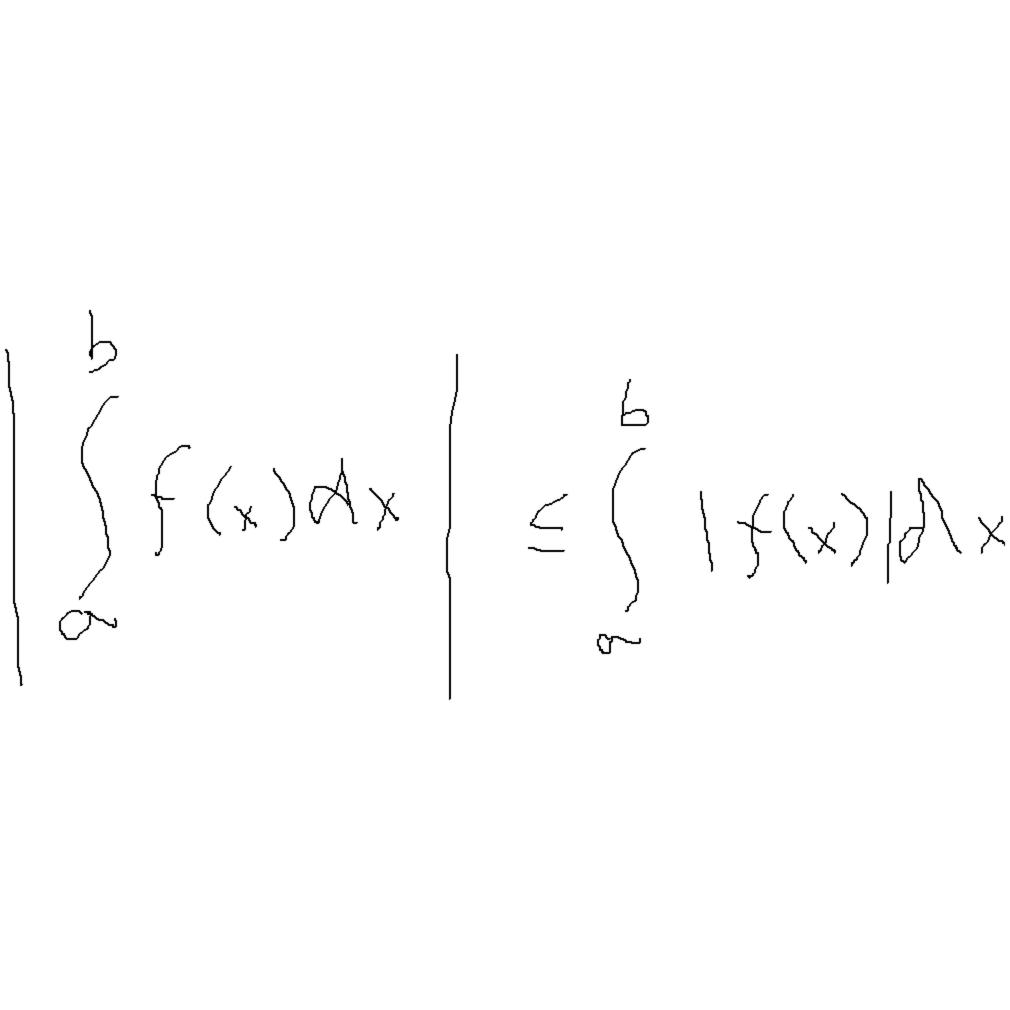 $$\left| \int_a^b f(x) dx \right| \leq \int_a^b |f(x)| dx$$